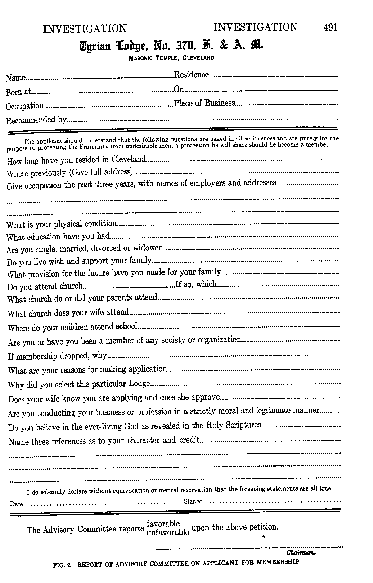 INVESTIGATION INVESTIGATION 491
Tyrian Lodge, No. 370, F. & A. M.
MASONIC TEMPLE, CLEVELAND
Name Residence
Born at On
Occupation Place of Business
Recommended by
The applicant should understand that the following questions are asked in all and are purely for the
purpose of protecting the
How long have you resided in Cleveland
Where previously (Give full address)
Give occupation the past three years, with names of employers and addresses
What is your physical condition
What education have you had
Are you single, married, divorced or widower
Do you live with and support your family
What provision for the future have you made for your family
Do you attend church If so, which
What church do or did your parents attend
What church does your wife attend
Where do your children attend school
Are you or have you been a member of any society or organization
If membership dropped, why
What are your reasons for making application
Why did you select this particular Lodge
Does your wife know you are applying and does she approve
Are you conducting your business or profession in a strictly moral and legitimate manner
Do you believe in the ever-living God as revealed in the Holy Scriptures
Name three references as to your character and credit
I do solemnly declare without equivocation or mental reservation that the foregoing statements are all true
Date Signed
The Advisory Committee reports favorable
unfavorable upon the above petition.
Chairman.
FIG. 2 REPORT OF ADVISORY COMMITTEE ON APPLICANT FOR MEMBERSHIP